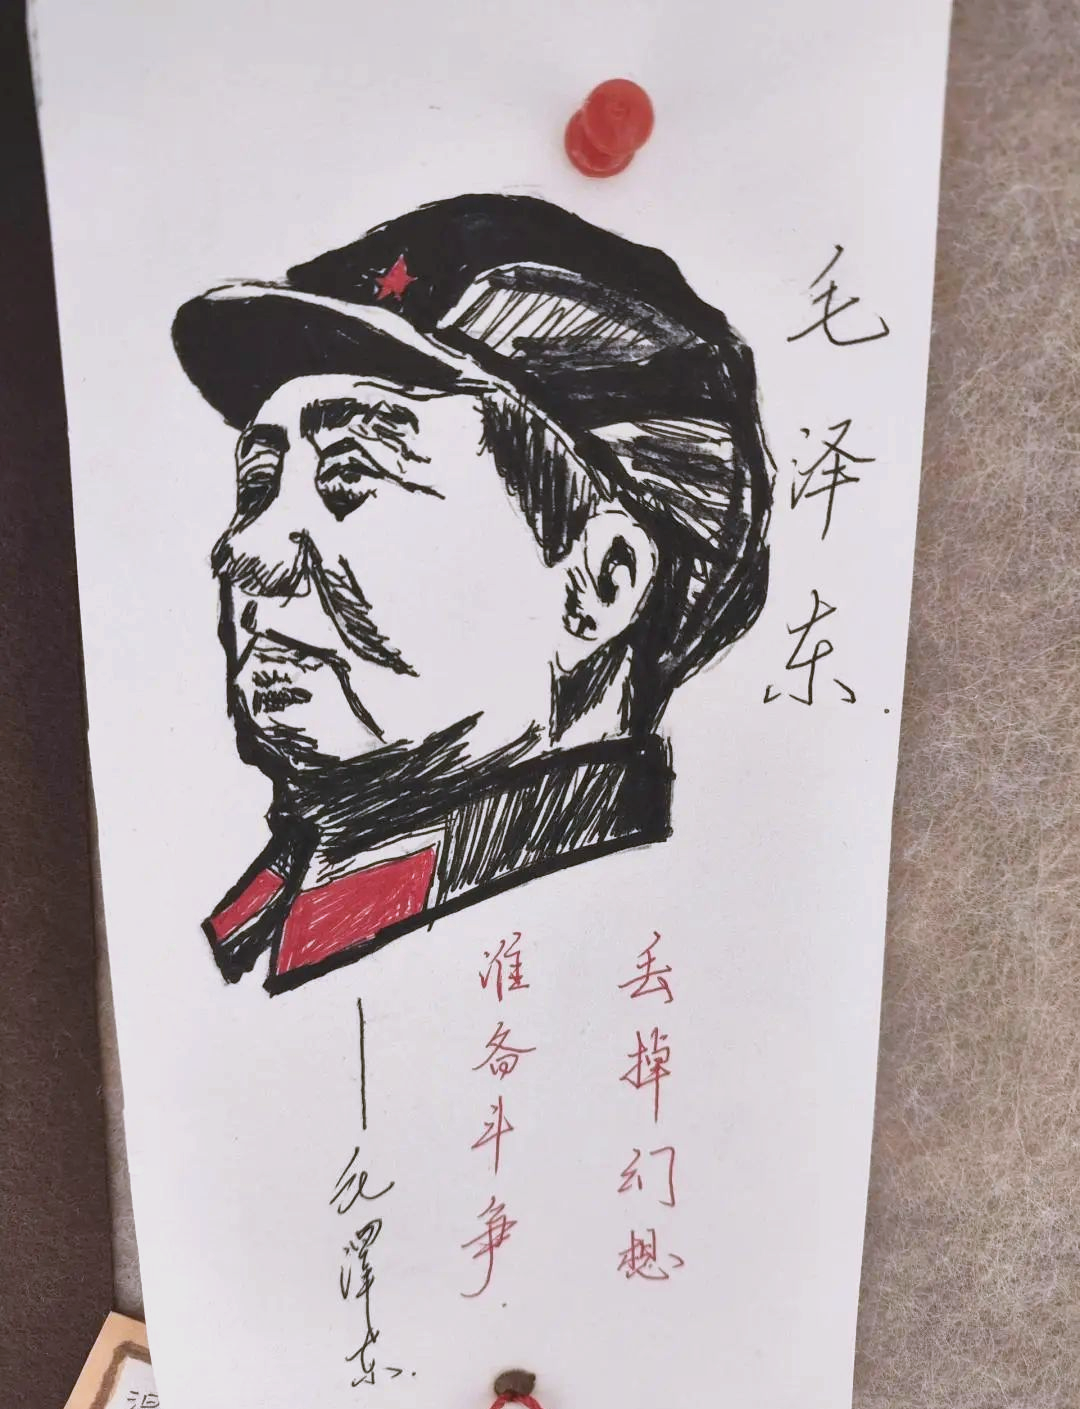 毛泽东.
丢掉幻想
准备斗争.
——毛泽东.